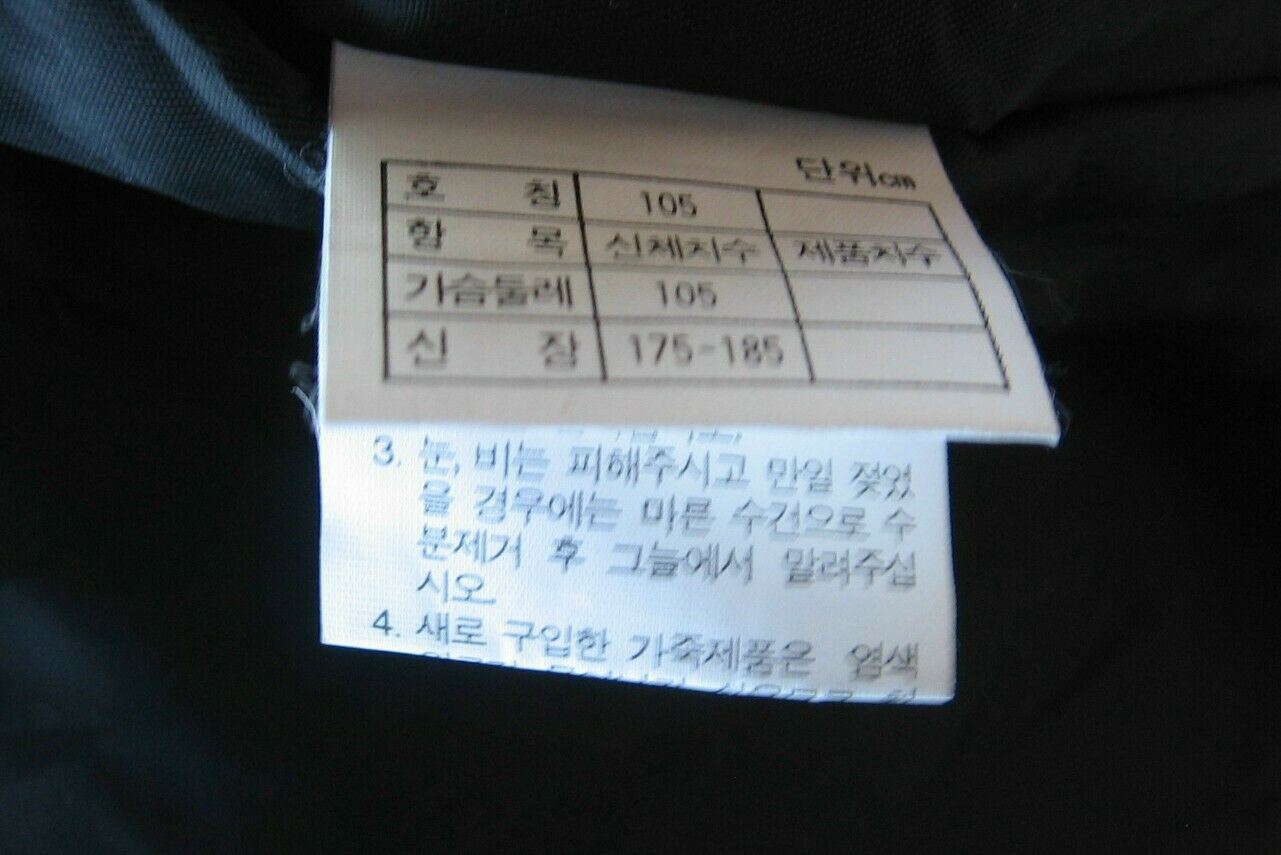 단위cm
호 칭 105
항 목 신체치수 제품치수
가슴둘레 105
신 장 175-185
3. 눈, 비는 피해주시고 만일 젖었
을 경우에는 마른 수건으로 수
분제거 후 그늘에서 말려주십
시오.
4. 새로 구입한 가죽제품은 염색